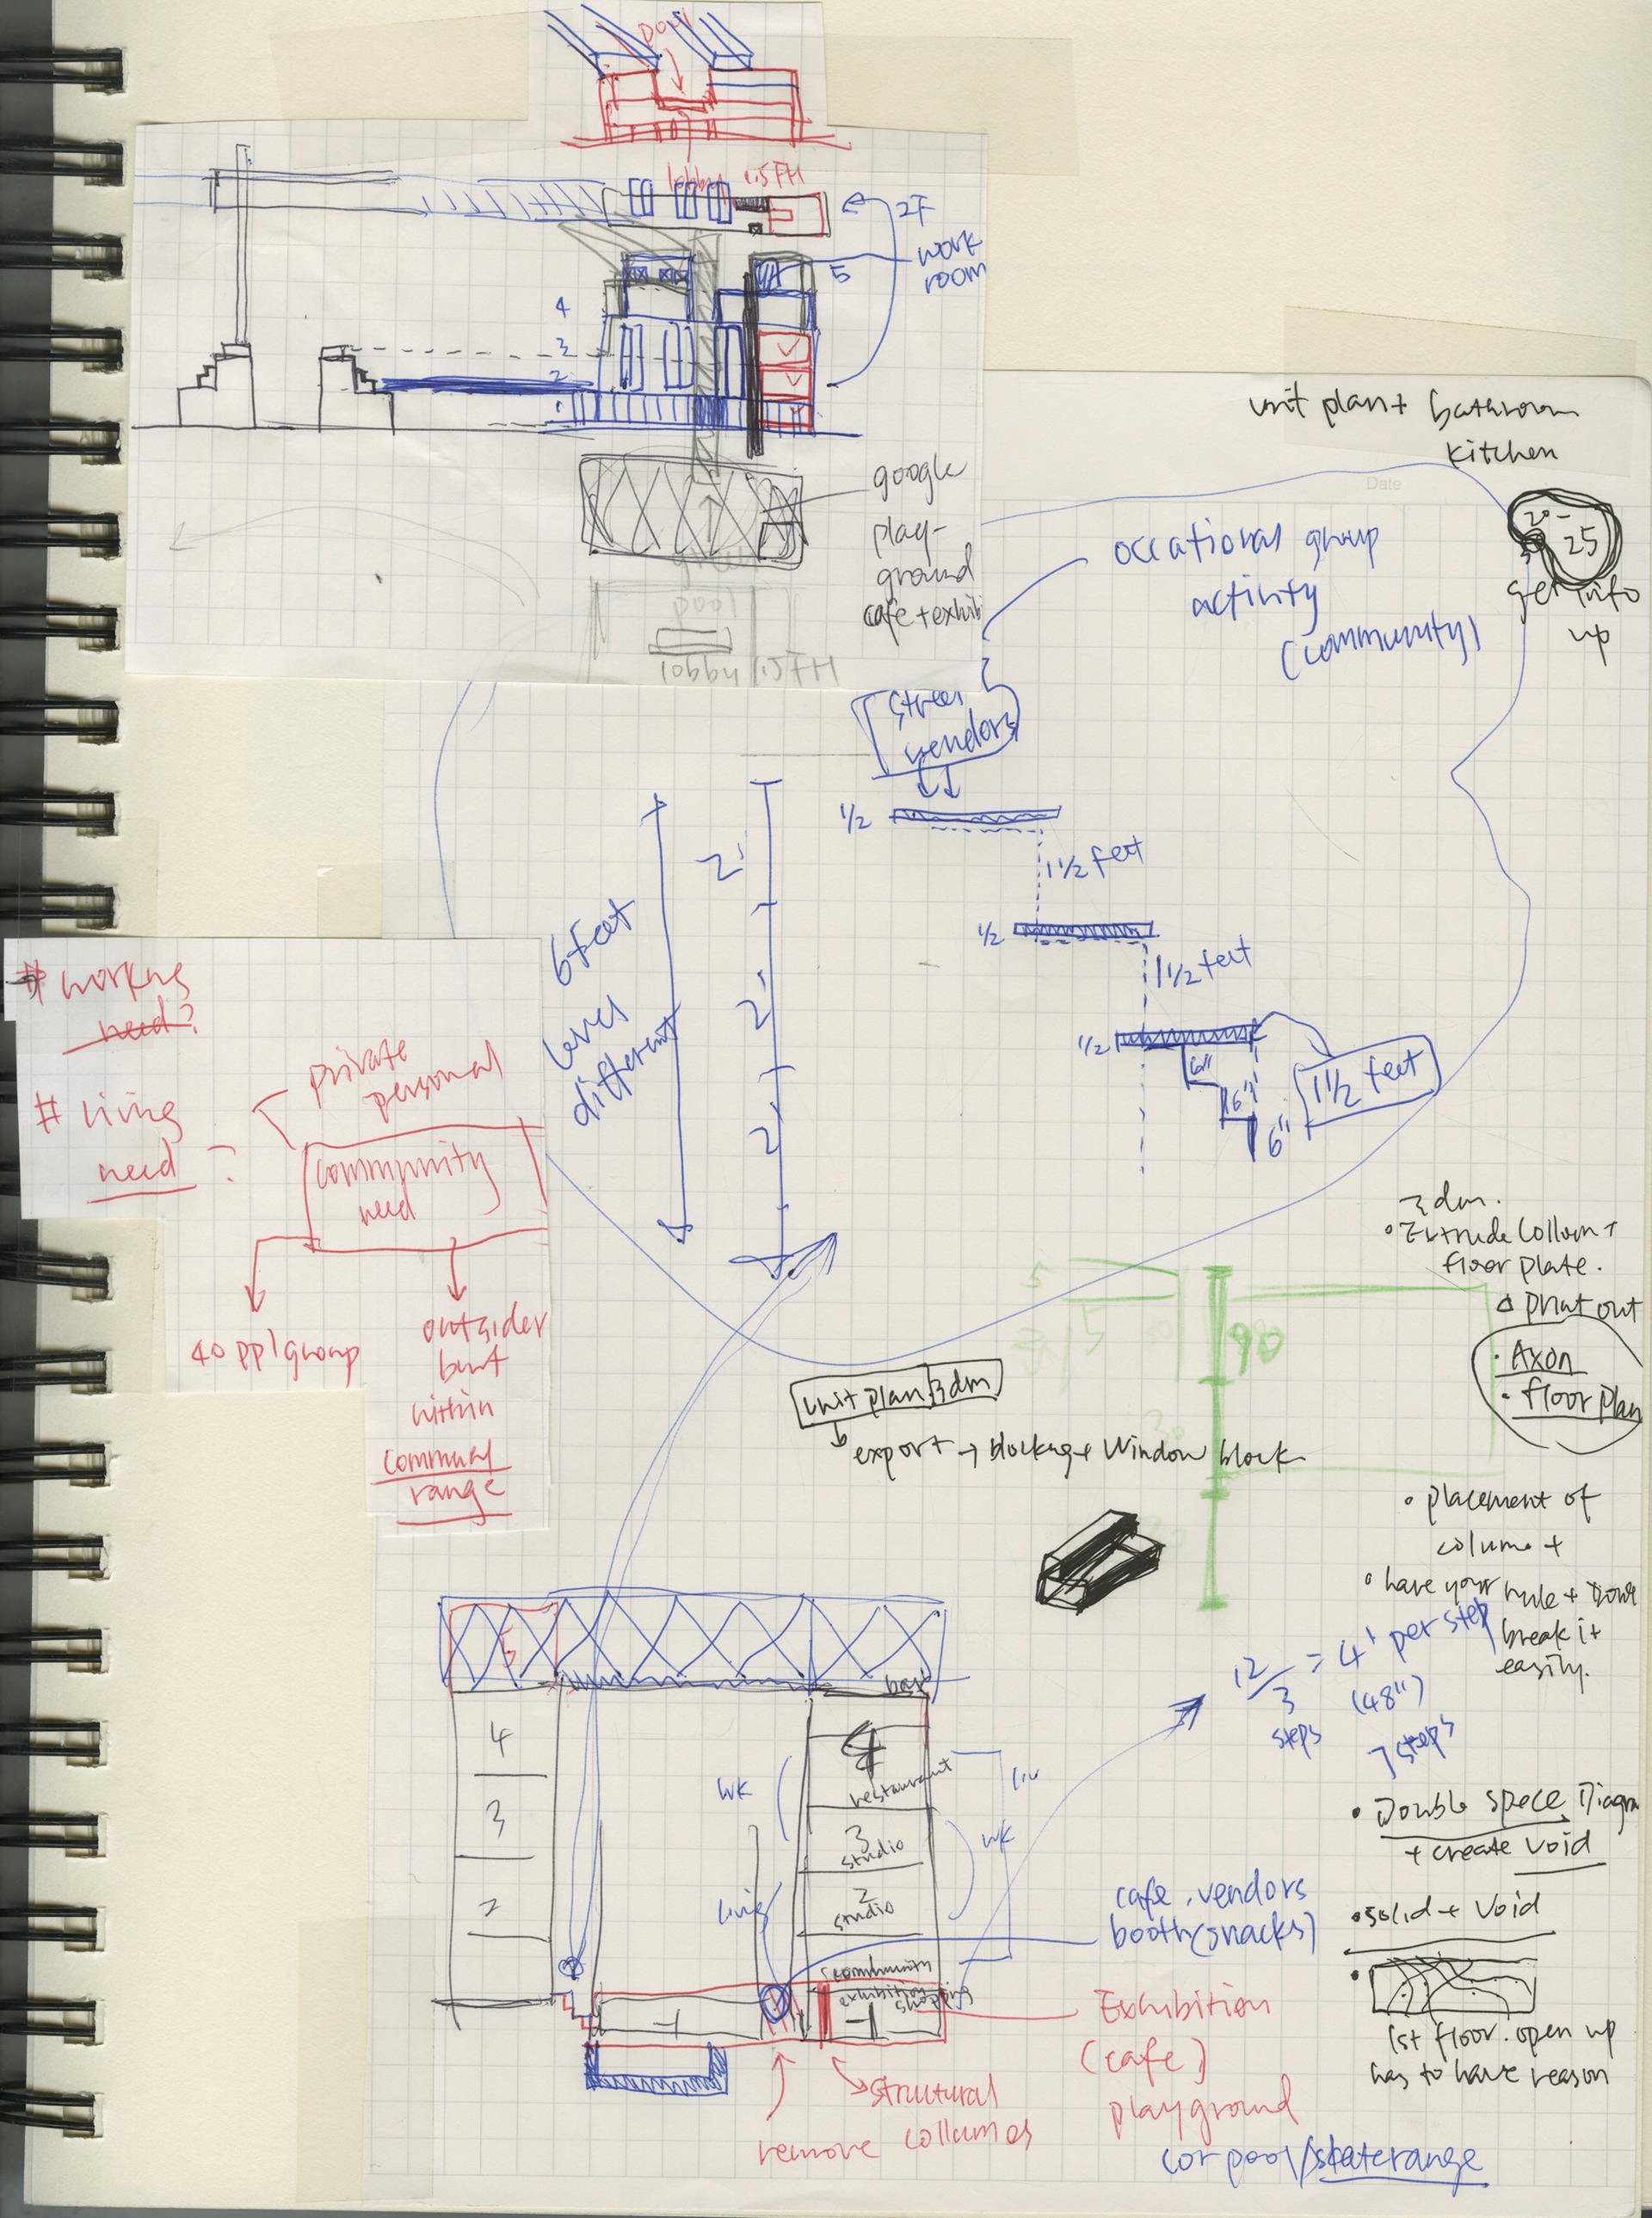 pool
lobby 1.5FH
2F
work
room
5
4
3
2
1
google
play-
ground
cafe + exhibi
pool
lobby 1.5FH
unit plan + bathroom
kitchen
Date
20-
25
get info
up
occational group
activity
(community)
street
vendors
1/2
1 1/2 feet
1/2
1 1/2 feet
1/2
6"
6"
6"
1 1/2 feet
2'
2'
2'
6 Feet
level
different
# workng
need?
# living
need ?
private
personal
community
need
40 ppl group
outsider
but
within
communal
range
3dm.
• Extrude Collum +
floor plate.
print out
• Axon
• floor plan
5
90
unit plan 3dm
export → blocking + Window block
• placement of
colum +
• have your rule + Dont
break it
easily.
12/3 = 4' per step
steps
(48")
7 steps
• Double spece Diagram
+ create void
• solid + void
1st floor. open up
has to have reason
5
bar
4
3
2
4
restaurant
3
studio
2
studio
community
exhibition
shopping
1
1
wk
living
liv
wk
cafe, vendors
booth (snacks)
Exhibition
(cafe)
playground
structural
remove collumes
cor pool/skaterange